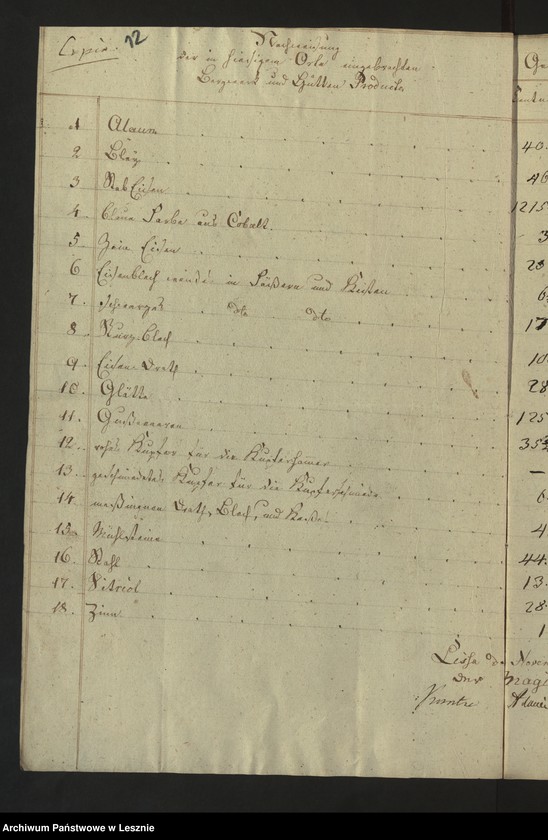 Copia. 12
Nachweisung
der in hiesigem Orte eingebrachten
Bergwerk und Hütten Producte
Centn
1 Alaun 40.
2 Bley 40
3 Stab Eisen 1215
4 blaue Farbe aus Cobalt. 3
5 Zain Eisen 28
6 Eisenblech in Fäßern und Kisten 6
7. Schwarzes dto dto 17
8. Blech
9. Eisen Drath 10
10. Glätte 28
11. Gußwaaren 125
12. rohes Kupfer für die Kupferhämer 35
13. geschmiedetes Kupfer für die Kupferschmiede —
14 meßingenen Drath, Blech, und 6
15 Mühlsteine 4
16. Stahl 44.
17. Vitriol 13.
18. Zinn 28
1
Lissa d Novem
der Mag
Archiwum Państwowe w Lesznie